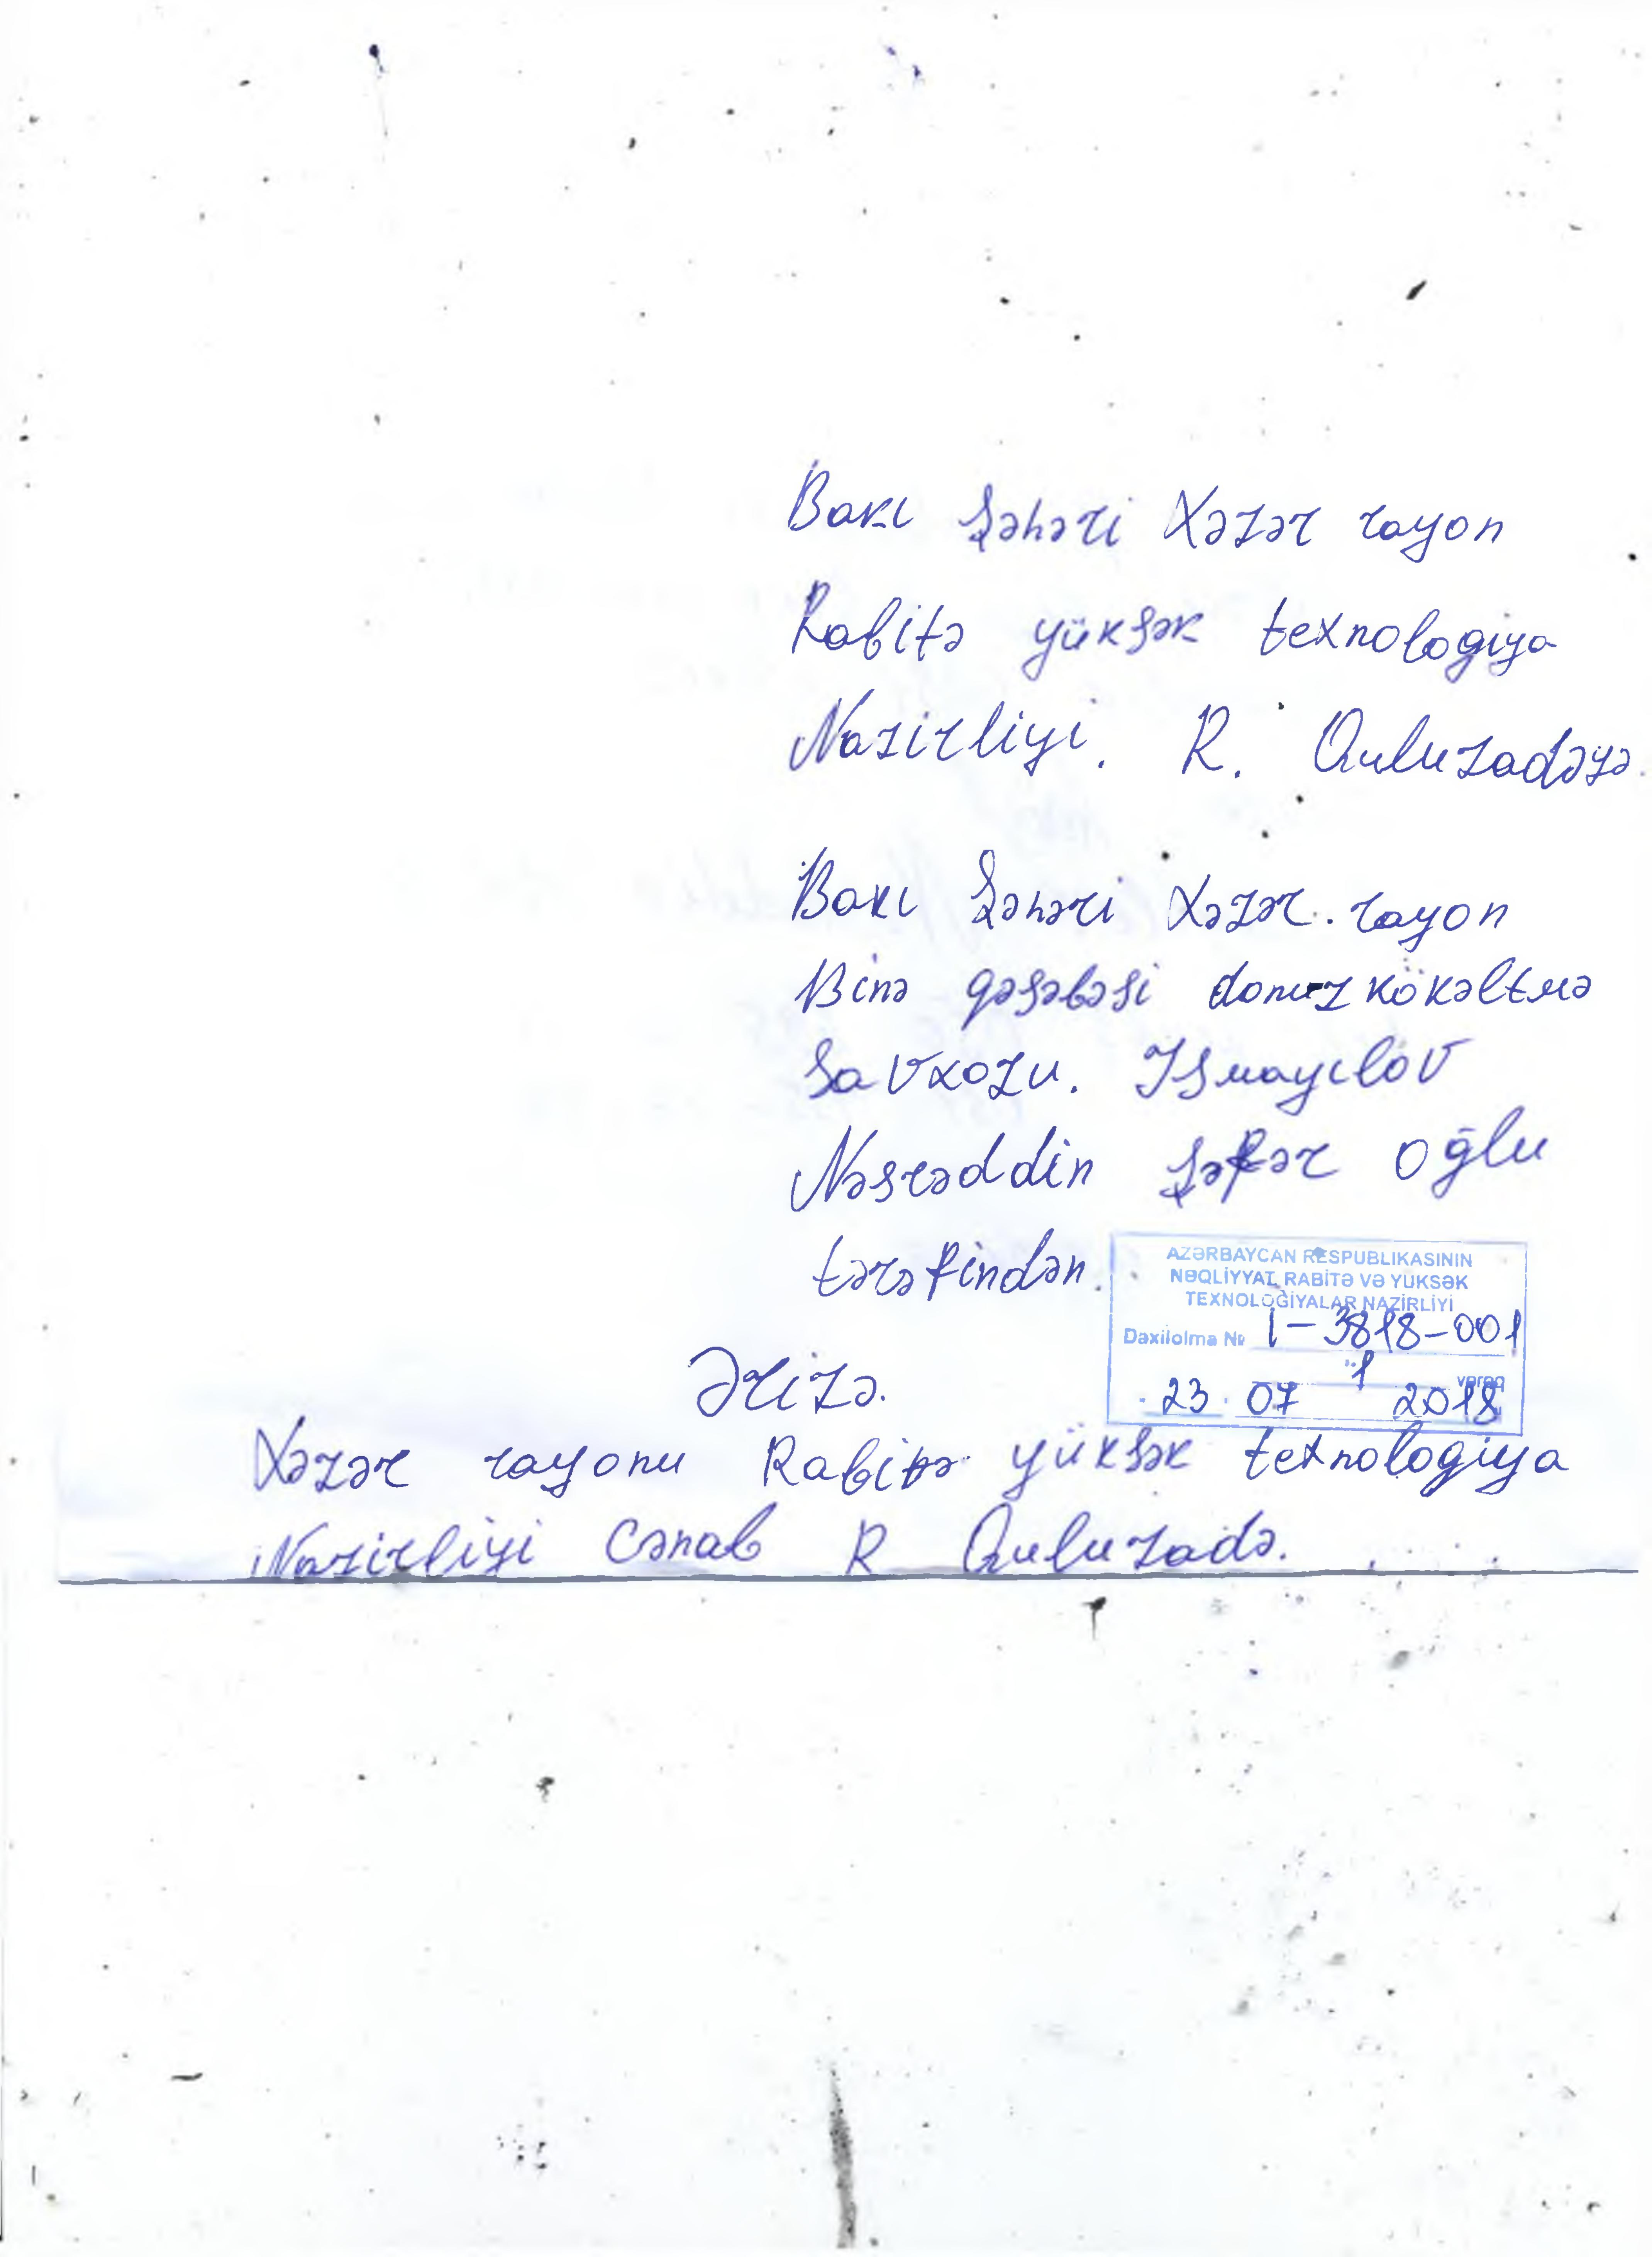 Bakı Şəhəri Xəzər rayon
Rabitə yüksək texnologiya
Nazirliyi. R. Quluzadəyə.
Bakı Şəhəri Xəzər. rayon
Binə qəsəbəsi donuz kökəltmə
Savxozu. İsmayılov
Nəsrəddin Şəfər oğlu
tərəfindən.
AZƏRBAYCAN RESPUBLİKASININ
NƏQLİYYAT, RABİTƏ VƏ YÜKSƏK
TEXNOLOGİYALAR NAZİRLİYİ
Daxilolma № 1-3818-001
1 vərəq
23 07 2018
Ərizə.
Xəzər rayonu Rabitə yüksək texnologiya
Nazirliyi Cənab R Quluzadə.